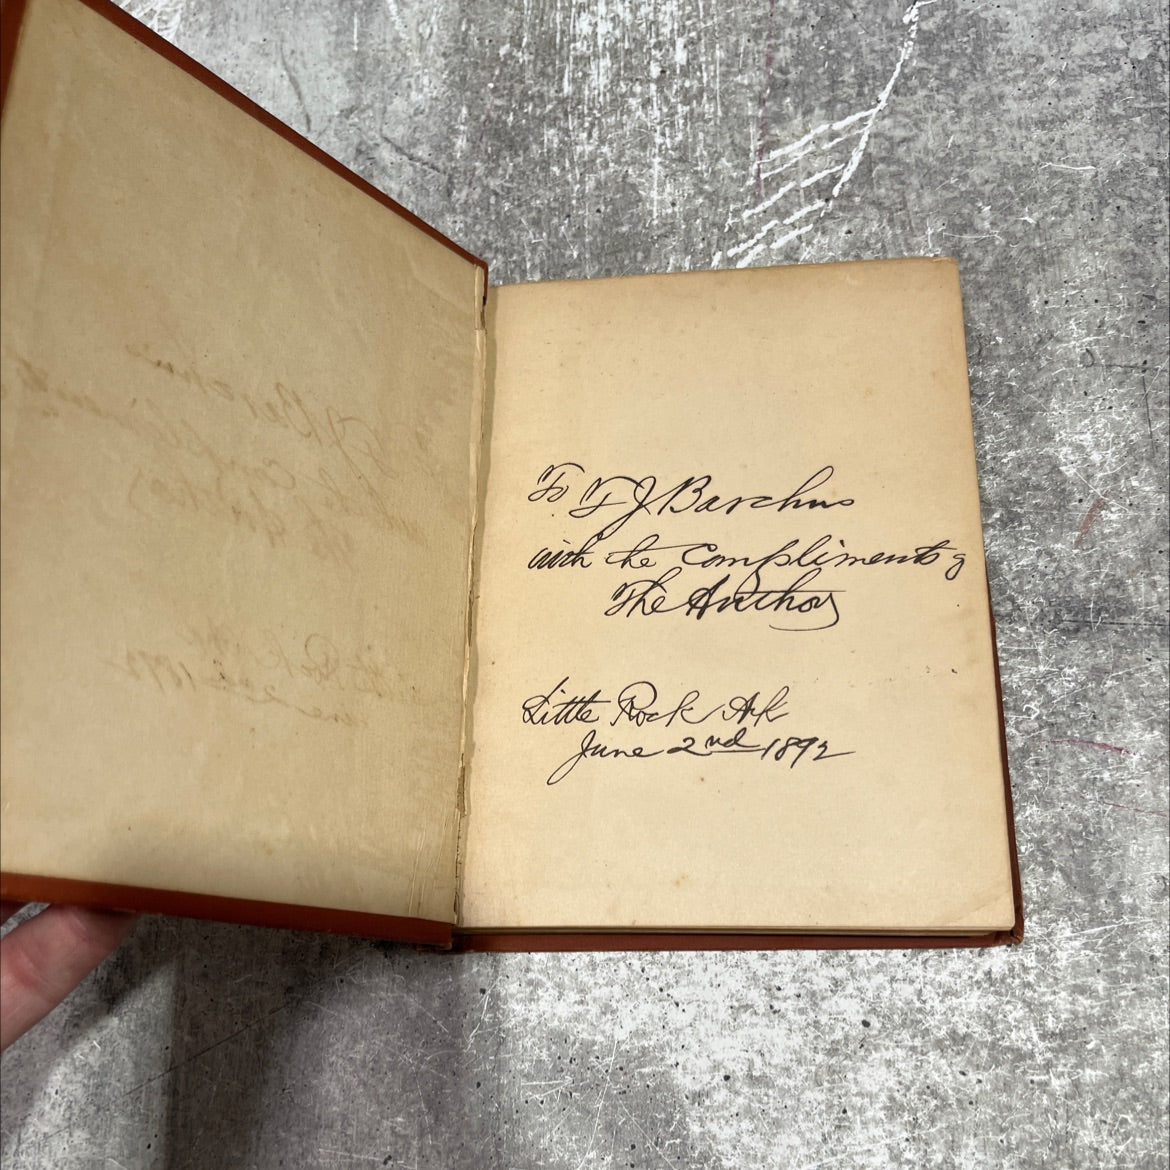 To T J Barchus
with the Compliments of
The Author
Little Rock Ark
June 2nd 1892